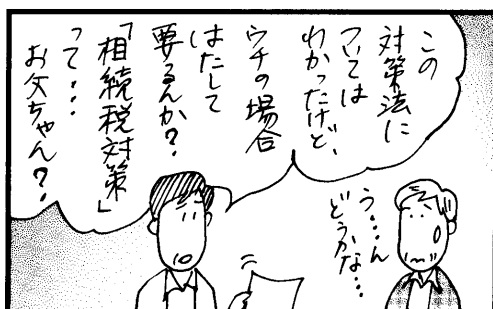 この
対策法に
ついては
わかったけど、
ウチの場合
はたして
要るんか?
「相続税対策」
って・・・
お父ちゃん?
う・・・ん
どうかな・・・